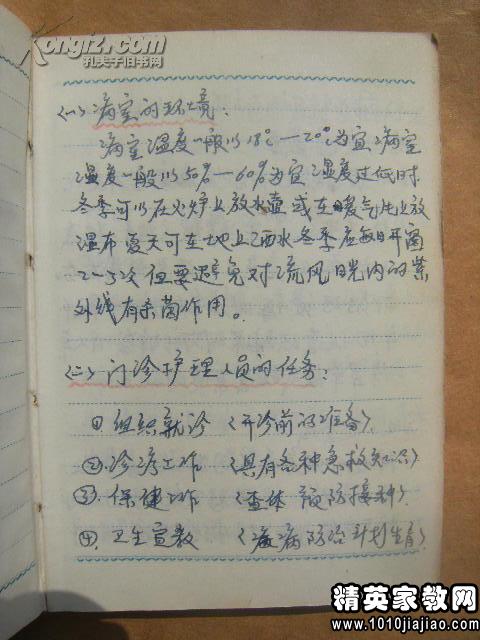 Kongfz.com
孔夫子旧书网
<一>病室的环境：
病室温度一般以18℃—20℃为宜 病室
湿度一般以50%—60%为宜 湿度过低时
冬季可以在火炉上放水壶 或在暖气片上放
湿布 夏天可在地上洒水 冬季应每日开窗
2—3次 但要避免对流风 日光内的紫
外线有杀菌作用。
<二>门诊护理人员的任务：
①组织就诊 <开诊前的准备>
②诊疗工作 <具有各种急救知识>
③保健工作 <查体 预防接种>
④卫生宣教 <疾病防治 计划生育>
精英家教网
www.1010jiajiao.com